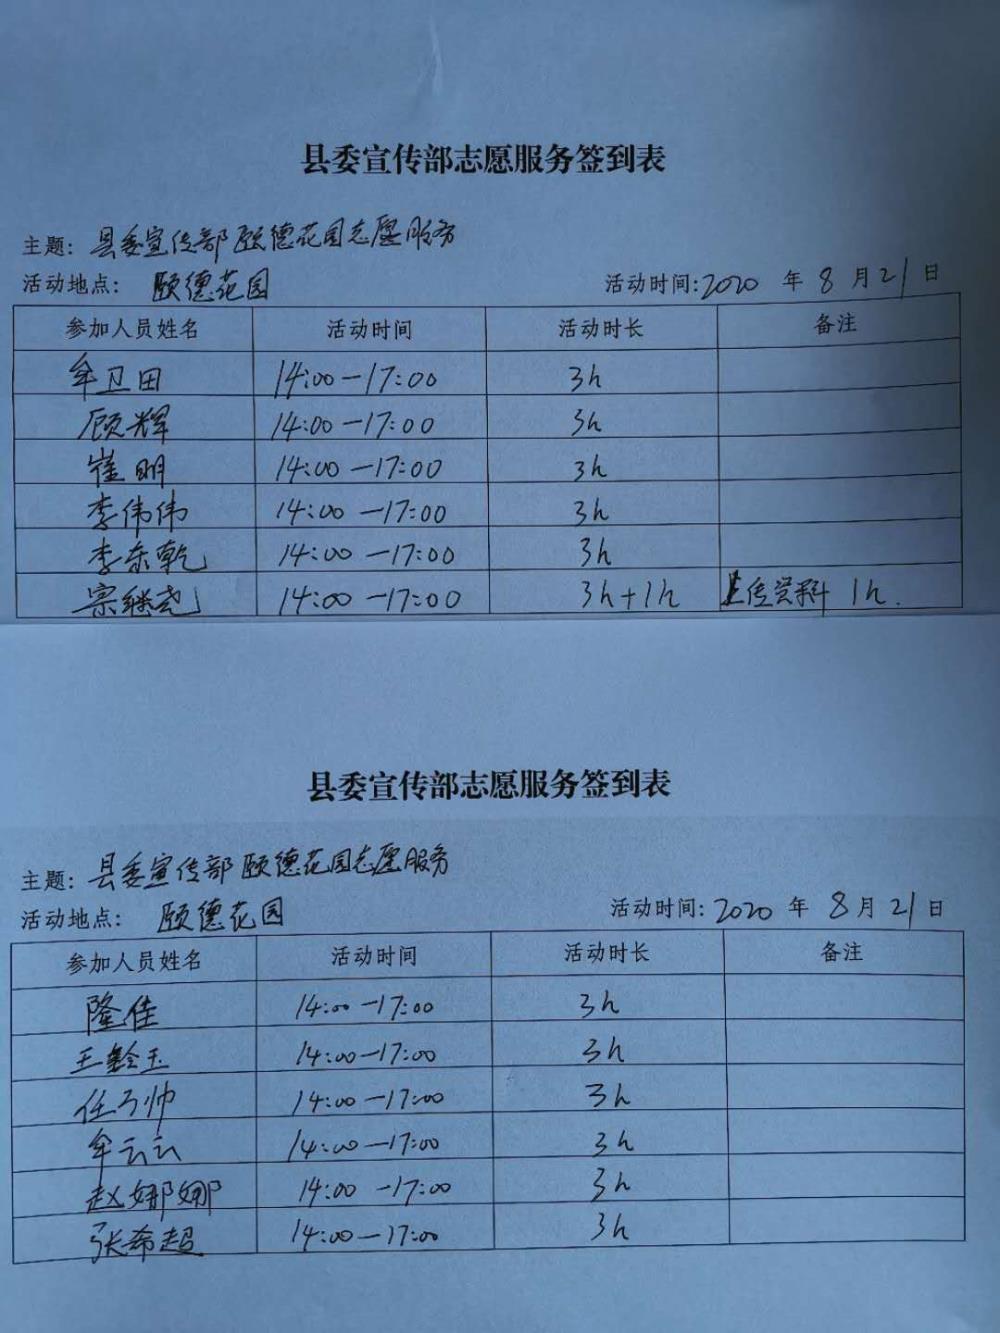 县委宣传部志愿服务签到表
主题: 县委宣传部颐德花园志愿服务
活动地点: 颐德花园 活动时间:2020 年 8 月 21 日
参加人员姓名 活动时间 活动时长 备注
牟卫田 14:00-17:00 3h
顾辉 14:00-17:00 3h
崔明 14:00-17:00 3h
李伟伟 14:00-17:00 3h
李东乾 14:00-17:00 3h
宗继尧 14:00-17:00 3h+1h 上传资料 1h.
县委宣传部志愿服务签到表
主题: 县委宣传部颐德花园志愿服务
活动地点: 颐德花园 活动时间:2020 年 8月 21 日
参加人员姓名 活动时间 活动时长 备注
隆佳 14:00-17:00 3h
14:00-17:00 3h
14:00-17:00 3h
牟云云 14:00-17:00 3h
赵娜娜 14:00-17:00 3h
张希超 14:00-17:00 3h